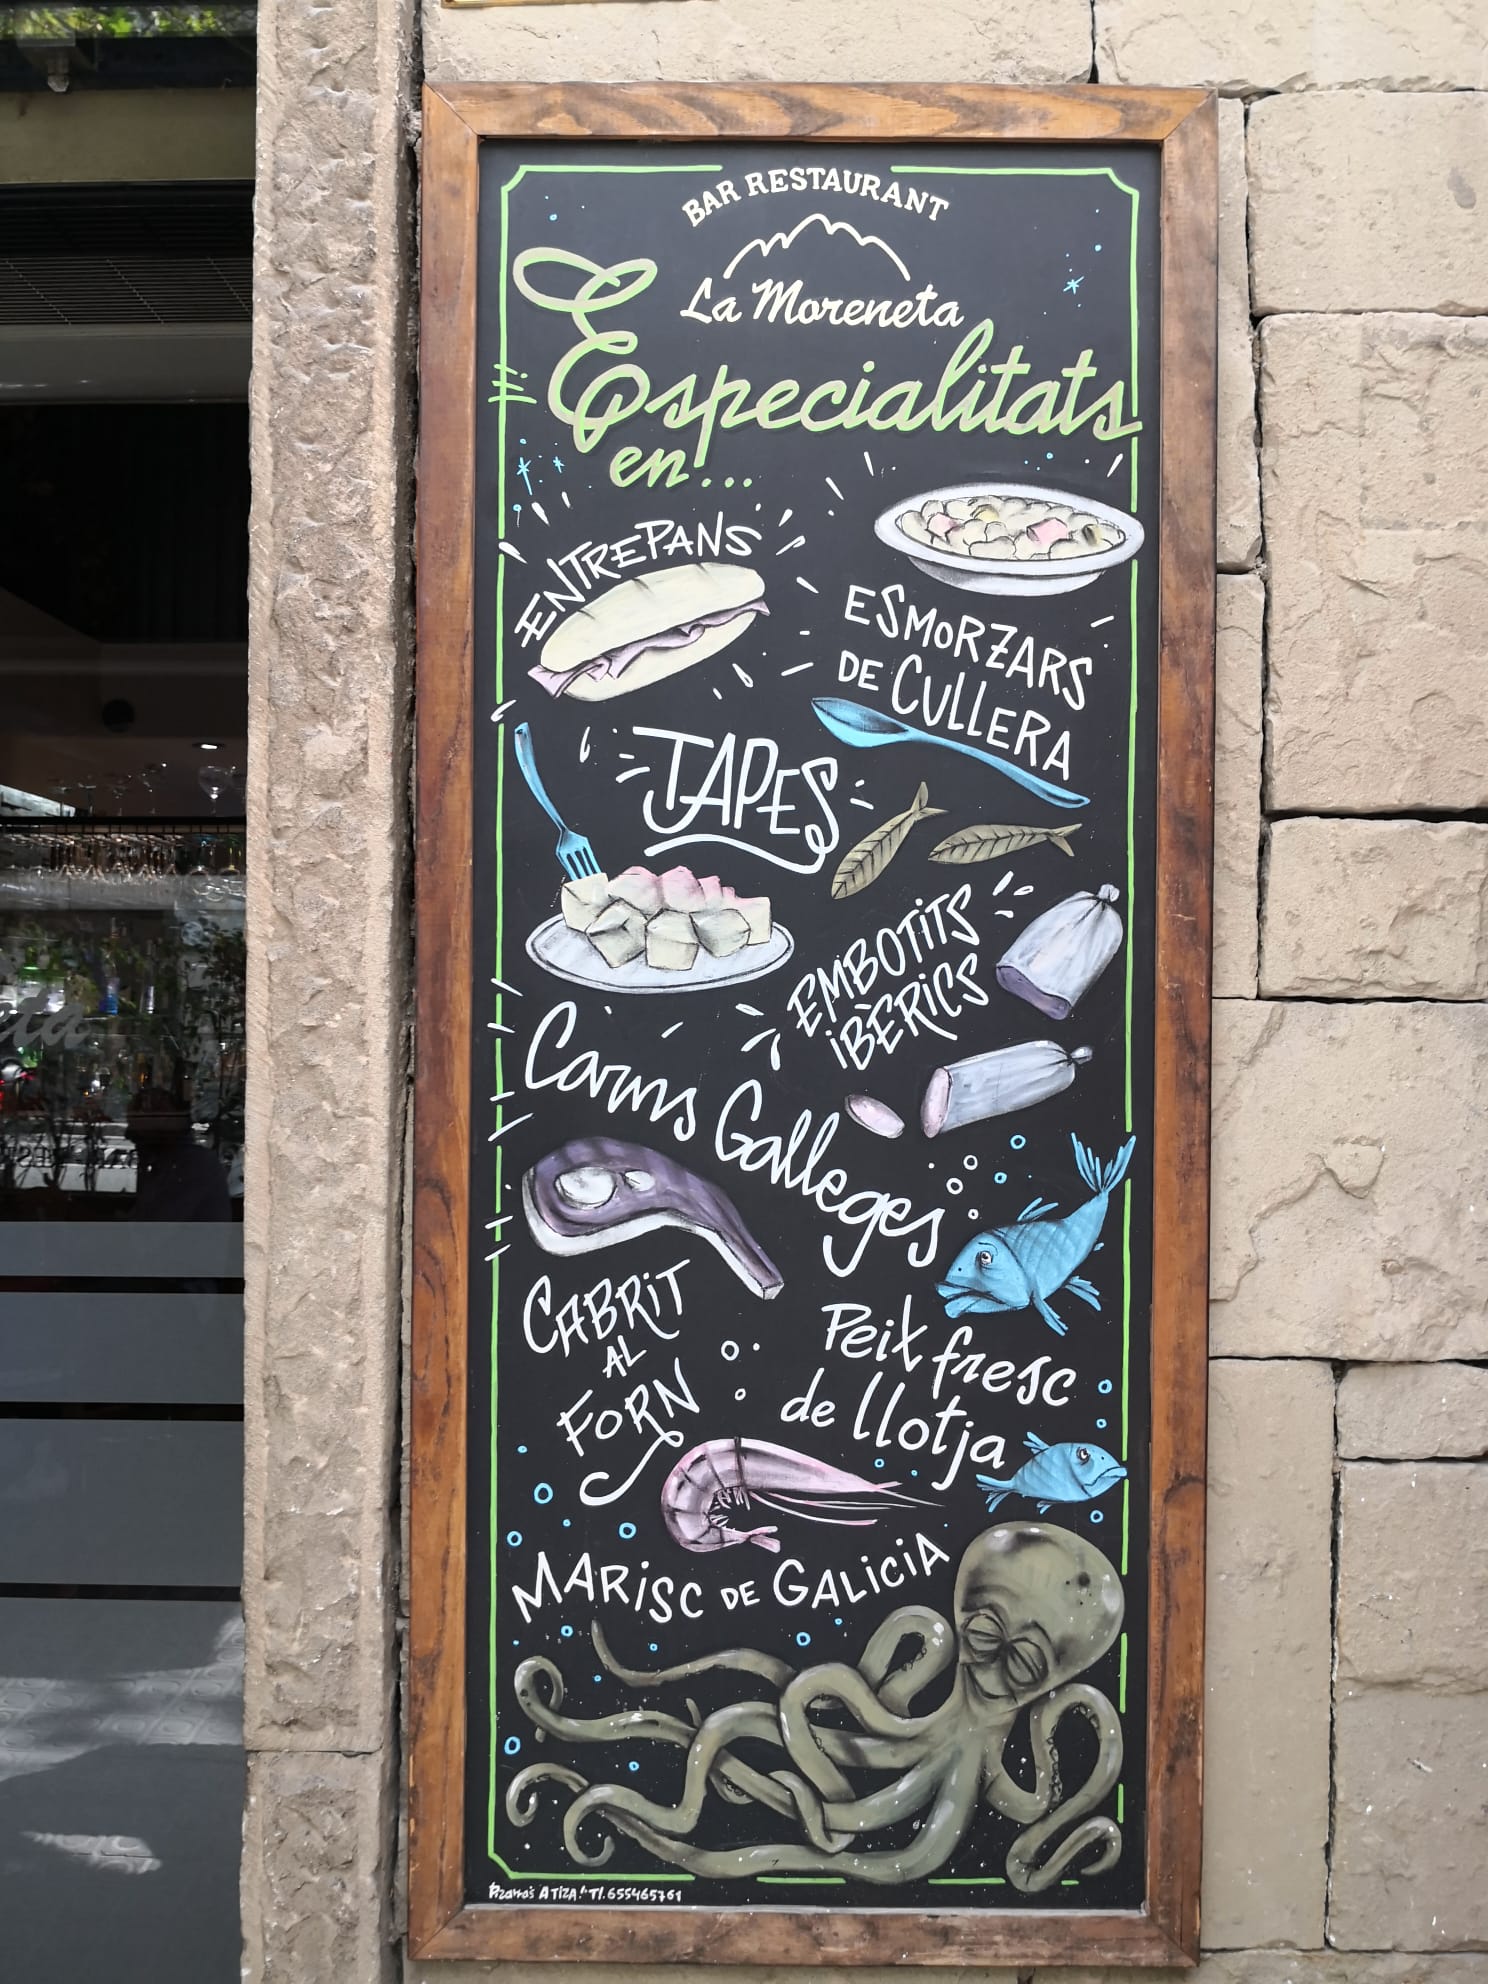 BAR RESTAURANT
La Moreneta
Especialitats
en...
ENTREPANS
ESMORZARS
DE CULLERA
TAPES
EMBOTITS
IBÈRICS
Carns Galleges
CABRIT
AL
FORN
Peix fresc
de llotja
MARISC DE GALICIA
Pizarras ATIZA! Tl. 655465761